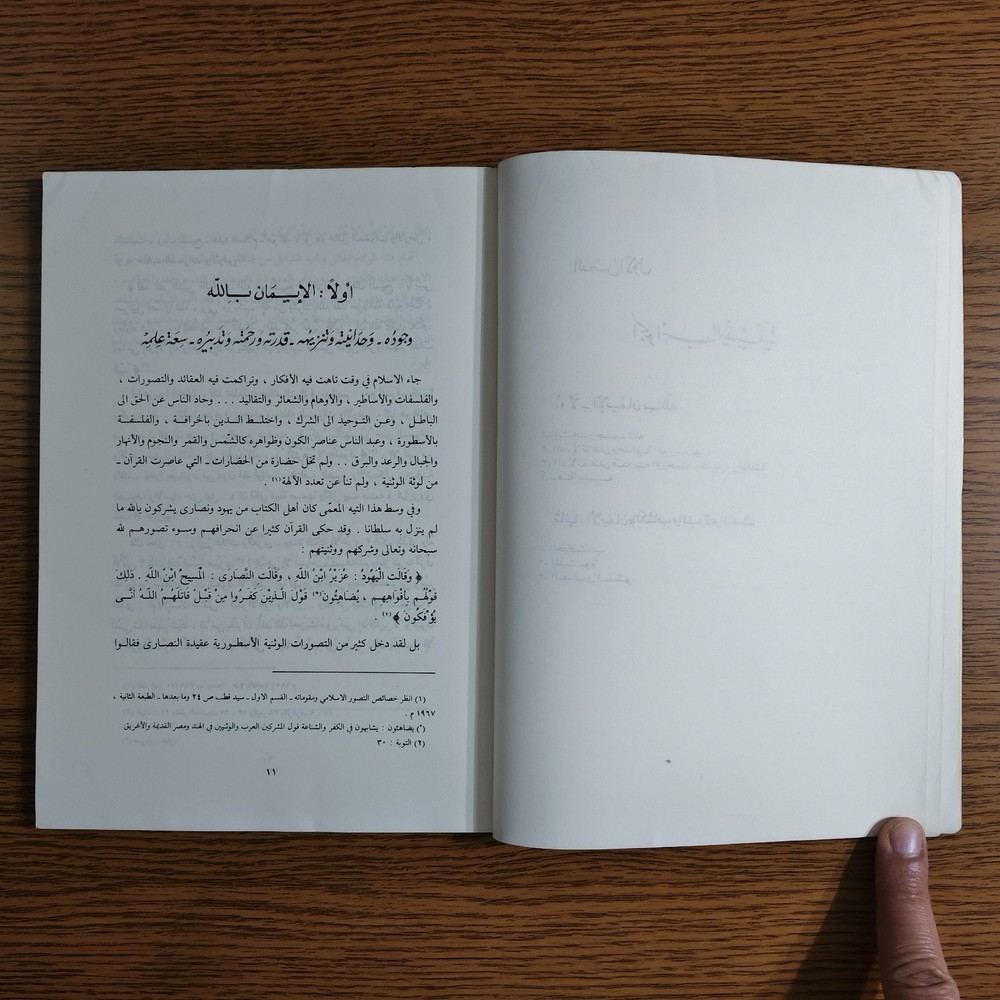 أولاً : الإيمان بالله
وجوده ـ وحدانيته وتنزيهه ـ قدرته ورحمته وتدبيره ـ سعة علمه
جاء الاسلام في وقت تاهت فيه الأفكار ، وتراكمت فيه العقائد والتصورات ،
والفلسفات والأساطير ، والأوهام والشعائر والتقاليد . . . وحاد الناس عن الحق الى
الباطل ، وعن التوحيد الى الشرك ، واختلط الدين بالخرافة ، والفلسفة
بالأسطورة ، وعبد الناس عناصر الكون وظواهره كالشمس والقمر والنجوم والأنهار
والجبال والرعد والبرق . . ولم تخل حضارة من الحضارات ـ التي عاصرت القرآن ـ
من لوثة الوثنية ، ولم تنأ عن تعدد الآلهة(١) .
وفي وسط هذا التيه المعمّى كان أهل الكتاب من يهود ونصارى يشركون بالله ما
لم ينزل به سلطانا . وقد حكى القرآن كثيرا عن انحرافهم وسوء تصورهم لله
سبحانه وتعالى وشركهم ووثنيتهم :
﴿ وقَالَت الْيَهُودُ : عُزَيْرٌ ابْنُ اللَّهِ ، وَقَالَت النَّصَارَى : الْمَسِيحُ ابْنُ اللَّهِ . ذلك
قَوْلُهُم بِأَفْوَاهِهِم ، يُضَاهِئُون(*) قَوْلَ الَّذِينَ كَفَرُوا مِنْ قَبْلُ قَاتَلَهُمُ اللَّهُ أَنَّى
يُؤْفَكُونَ ﴾(٢) .
بل لقد دخل كثير من التصورات الوثنية الأسطورية عقيدة النصارى فقالوا
(١) انظر خصائص التصور الاسلامي ومقوماته ـ القسم الاول ـ سيد قطب ص ٢٤ وما بعدها ـ الطبعة الثانية ،
١٩٦٧ م .
(*) يضاهئون : يشابهون في الكفر والشناعة قول المشركين العرب والوثنيين في الهند ومصر القديمة والأغريق
(٢) التوبة : ٣٠
١١